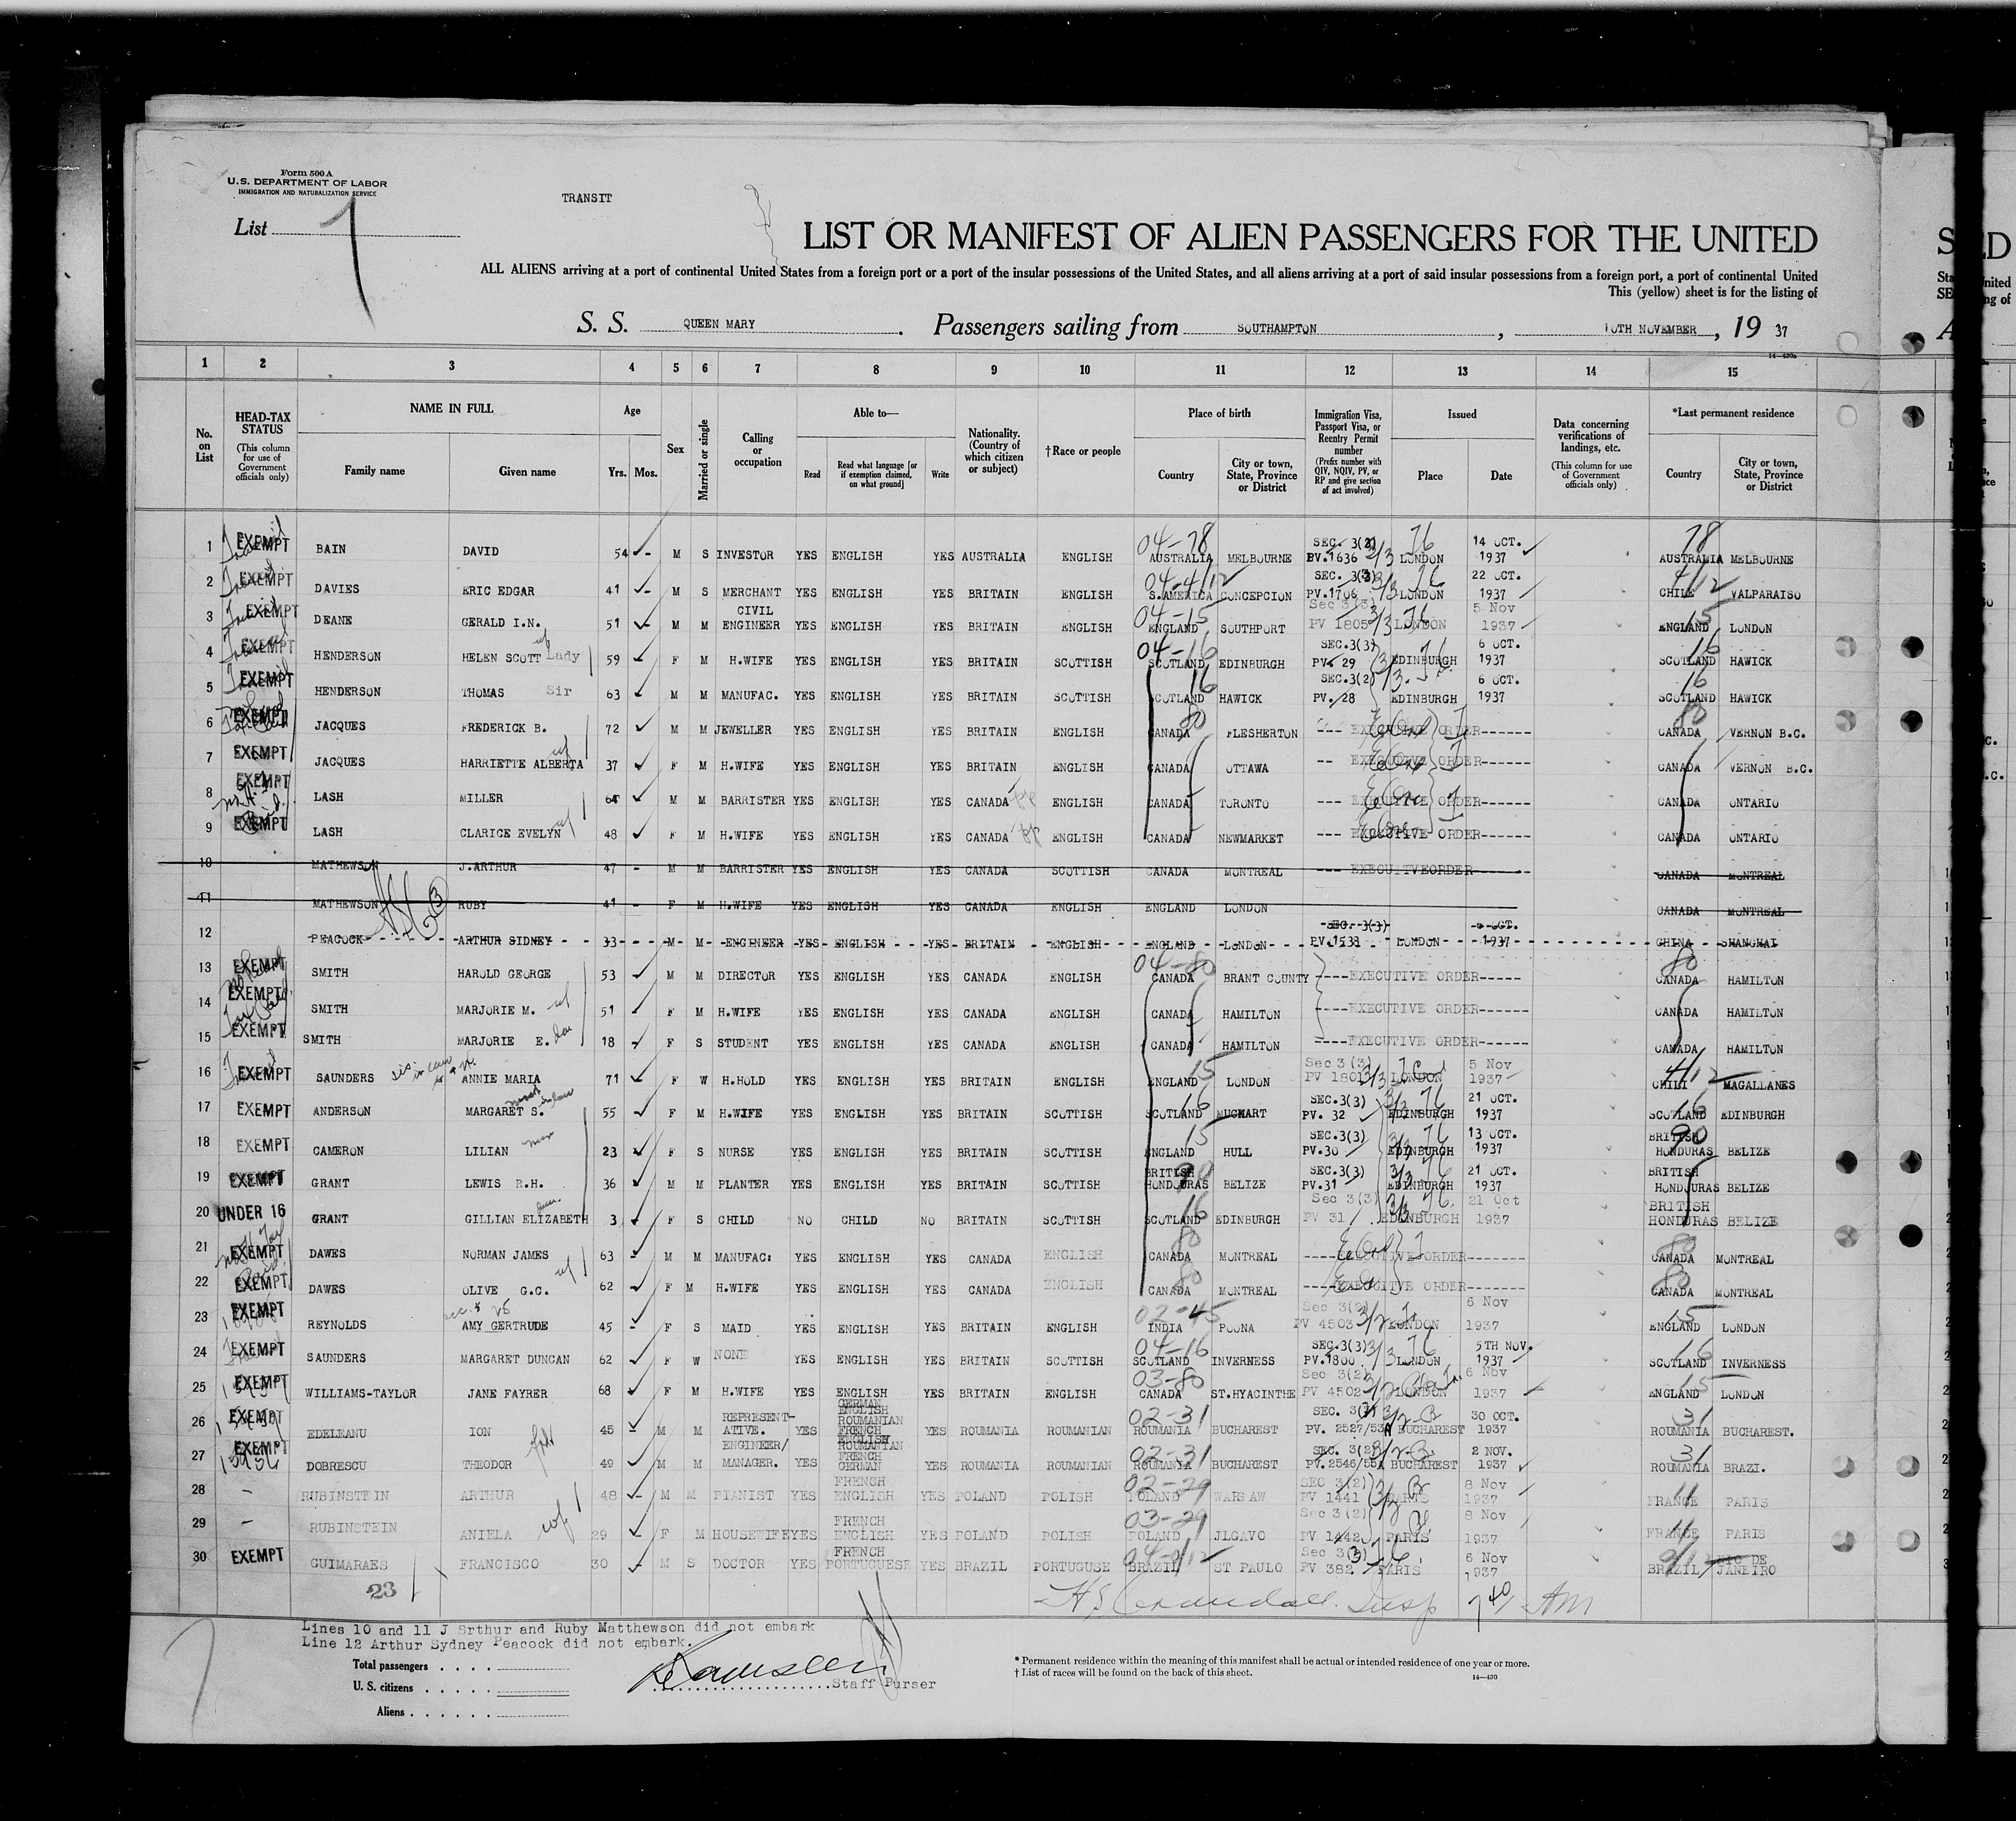 Form 500 A
U. S. DEPARTMENT OF LABOR
IMMIGRATION AND NATURALIZATION SERVICE
TRANSIT
List 7
LIST OR MANIFEST OF ALIEN PASSENGERS FOR THE UNITED
ALL ALIENS arriving at a port of continental United States from a foreign port or a port of the insular possessions of the United States, and all aliens arriving at a port of said insular possessions from a foreign port, a port of continental United
This (yellow) sheet is for the listing of
S. S. QUEEN MARY. Passengers sailing from SOUTHAMPTON, 10TH NOVEMBER, 19 37
14—430a
1 2 3 4 5 6 7 8 9 10 11 12 13 14 15
No. on List
HEAD-TAX STATUS (This column for use of Government officials only)
NAME IN FULL
Family name Given name
Age
Yrs. Mos.
Sex
Married or single
Calling or occupation
Able to—
Read Read what language [or if exemption claimed, on what ground] Write
Nationality. (Country of which citizen or subject)
†Race or people
Place of birth
Country City or town, State, Province or District
Immigration Visa, Passport Visa, or Reentry Permit number (Prefix number with QIV, NQIV, PV, or RP and give section of act involved)
Issued
Place Date
Data concerning verifications of landings, etc. (This column for use of Government officials only)
*Last permanent residence
Country City or town, State, Province or District
1 EXEMPT BAIN DAVID 54 - M S INVESTOR YES ENGLISH YES AUSTRALIA ENGLISH 04-78 AUSTRALIA MELBOURNE SEC. 3(2) PV.1636 3/3 76 LONDON 14 OCT. 1937 78 AUSTRALIA MELBOURNE
2 EXEMPT DAVIES ERIC EDGAR 41 - M S MERCHANT YES ENGLISH YES BRITAIN ENGLISH 04-4/12 S.AMERICA CONCEPCION SEC. 3(3) PV.1706 3/3 76 LONDON 22 OCT. 1937 4/12 CHILE VALPARAISO
3 EXEMPT DEANE GERALD I.N. 51 - M M CIVIL ENGINEER YES ENGLISH YES BRITAIN ENGLISH 04-15 ENGLAND SOUTHPORT Sec 3(3) PV 1805 3/3 76 LONDON 5 Nov 1937 15 ENGLAND LONDON
4 EXEMPT HENDERSON HELEN SCOTT Lady wf 59 F M H.WIFE YES ENGLISH YES BRITAIN SCOTTISH 04-16 SCOTLAND EDINBURGH SEC.3(3) PV. 29 EDINBURGH 6 OCT. 1937 16 SCOTLAND HAWICK
5 EXEMPT HENDERSON THOMAS Sir 63 M M MANUFAC. YES ENGLISH YES BRITAIN SCOTTISH 16 SCOTLAND HAWICK SEC.3(2) PV. 28 EDINBURGH 6 OCT. 1937 16 SCOTLAND HAWICK
6 EXEMPT JACQUES FREDERICK B. 72 M M JEWELLER YES ENGLISH YES BRITAIN ENGLISH 80 CANADA FLESHERTON --- EXECUTIVE ORDER------ 80 CANADA VERNON B.C.
7 EXEMPT JACQUES HARRIETTE ALBERTA wf 37 F M H.WIFE YES ENGLISH YES BRITAIN ENGLISH CANADA OTTAWA -- EXECUTIVE ORDER------ CANADA VERNON B.C.
8 EXEMPT LASH MILLER 64 M M BARRISTER YES ENGLISH YES CANADA pp ENGLISH CANADA TORONTO --- EXECUTIVE ORDER------ CANADA ONTARIO
9 EXEMPT LASH CLARICE EVELYN wf 48 F M H.WIFE YES ENGLISH YES CANADA pp ENGLISH CANADA NEWMARKET --- EXECUTIVE ORDER------ CANADA ONTARIO
10 MATHEWSON J.ARTHUR 47 - M M BARRISTER YES ENGLISH YES CANADA SCOTTISH CANADA MONTREAL --- EXECUITVEORDER------ CANADA MONTREAL
11 MATHEWSON RUBY 41 - F M H.WIFE YES ENGLISH YES CANADA ENGLISH ENGLAND LONDON CANADA MONTREAL
12 PEACOCK ARTHUR SIDNEY 33 M M ENGINEER YES ENGLISH YES BRITAIN ENGLISH ENGLAND LONDON SEC. 3(3) PV.1538 LONDON OCT. 1937 CHINA SHANGHAI
13 EXEMPT SMITH HAROLD GEORGE 53 M M DIRECTOR YES ENGLISH YES CANADA ENGLISH 04-80 CANADA BRANT COUNTY ----EXECUTIVE ORDER----- 80 CANADA HAMILTON
14 EXEMPT SMITH MARJORIE M. wf 51 F M H.WIFE YES ENGLISH YES CANADA ENGLISH CANADA HAMILTON ----EXECUTIVE ORDER------ CANADA HAMILTON
15 EXEMPT SMITH MARJORIE E. dau 18 F S STUDENT YES ENGLISH YES CANADA ENGLISH CANADA HAMILTON ----EXECUTIVE ORDER------ CANADA HAMILTON
16 EXEMPT SAUNDERS sis in law ANNIE MARIA 71 F W H.HOLD YES ENGLISH YES BRITAIN ENGLISH 15 ENGLAND LONDON Sec 3(3) PV 1801 3/3 LONDON 5 Nov 1937 4/12 CHILI MAGALLANES
17 EXEMPT ANDERSON MARGARET S. 55 F M H.WIFE YES ENGLISH YES BRITAIN SCOTTISH 16 SCOTLAND MUCHART SEC.3(3) PV. 32 3/3 76 EDINBURGH 21 OCT. 1937 16 SCOTLAND EDINBURGH
18 EXEMPT CAMERON LILIAN 23 F S NURSE YES ENGLISH YES BRITAIN SCOTTISH 15 ENGLAND HULL SEC.3(3) PV.30 3/3 76 EDINBURGH 13 OCT. 1937 90 BRITISH HONDURAS BELIZE
19 EXEMPT GRANT LEWIS R.H. 36 M M PLANTER YES ENGLISH YES BRITAIN SCOTTISH 90 BRITISH HONDURAS BELIZE SEC.3(3) PV.31 3/3 76 EDINBURGH 21 OCT. 1937 BRITISH HONDURAS BELIZE
20 UNDER 16 GRANT GILLIAN ELIZABETH dau. 3 F S CHILD NO CHILD NO BRITAIN SCOTTISH 16 SCOTLAND EDINBURGH Sec 3(3) PV 31 3/3 76. EDINBURGH 21 Oct 1937 BRITISH HONDURAS BELIZE
21 EXEMPT DAWES NORMAN JAMES 63 M M MANUFAC: YES ENGLISH YES CANADA ENGLISH 80 CANADA MONTREAL ----EXECUTIVE ORDER------ 80 CANADA MONTREAL
22 EXEMPT DAWES OLIVE G.C. wf 62 F M H.WIFE YES ENGLISH YES CANADA ENGLISH 80 CANADA MONTREAL ----EXECUTIVE ORDER------ 80 CANADA MONTREAL
23 EXEMPT REYNOLDS AMY GERTRUDE 45 - F S MAID YES ENGLISH YES BRITAIN ENGLISH 02-45 INDIA POONA Sec 3(2) PV 4503 3/2 LONDON 6 Nov 1937 15 ENGLAND LONDON
24 EXEMPT SAUNDERS MARGARET DUNCAN 62 F W NONE YES ENGLISH YES BRITAIN SCOTTISH 04-16 SCOTLAND INVERNESS SEC.3(3) PV.1800 3/3 76 LONDON 5TH NOV. 1937 16 SCOTLAND INVERNESS
25 EXEMPT WILLIAMS-TAYLOR JANE FAYRER 68 F M H.WIFE YES ENGLISH YES BRITAIN ENGLISH 03-80 CANADA ST.HYACINTHE Sec 3(2) PV 4502 LONDON 6 Nov 1937 15 ENGLAND LONDON
26 EXEMPT EDELEANU ION 45 - M M REPRESENT-ATIVE. YES GERMAN ENGLISH ROUMANIAN FRENCH YES ROUMANIA ROUMANIAN 02-31 ROUMANIA BUCHAREST SEC. 3(2) PV. 2527/53A BUCHAREST 30 OCT. 1937 31 ROUMANIA BUCHAREST.
27 EXEMPT DOBRESCU THEODOR 49 M M ENGINEER/ MANAGER. YES ENGLISH ROUMANIAN FRENCH GERMAN YES ROUMANIA ROUMANIAN 02-31 ROUMANIA BUCHAREST SEC. 3(2) PV.2546/55A BUCHAREST 2 NOV. 1937 31 ROUMANIA BRAZI.
28 - RUBINSTEIN ARTHUR 48 - M M PIANIST YES FRENCH ENGLISH YES POLAND POLISH 02-29 POLAND WARSAW SEC 3(2) PV 1441 PARIS 8 Nov 1937 11 FRANCE PARIS
29 - RUBINSTEIN ANIELA wf 29 F M HOUSEWIFE YES FRENCH ENGLISH YES POLAND POLISH 03-29 POLAND JLGAVO Sec 3(2) PV 1442 PARIS 8 Nov 1937 11 FRANCE PARIS
30 EXEMPT GUIMARAES FRANCISCO 30 M S DOCTOR YES FRENCH PORTUGUESE YES BRAZIL PORTUGUSE BRAZIL ST PAULO Sec 3(3) PV 382 PARIS 6 Nov 1937 BRAZIL RIO DE JANEIRO
23
H S Crandall. Insp 7 40 AM
Lines 10 and 11 J Srthur and Ruby Matthewson did not embark
Line 12 Arthur Sydney Peacock did not embark.
Total passengers . . . .
U. S. citizens . . . . .
Aliens . . . . . .
Staff Purser
* Permanent residence within the meaning of this manifest shall be actual or intended residence of one year or more.
† List of races will be found on the back of this sheet.
14—430